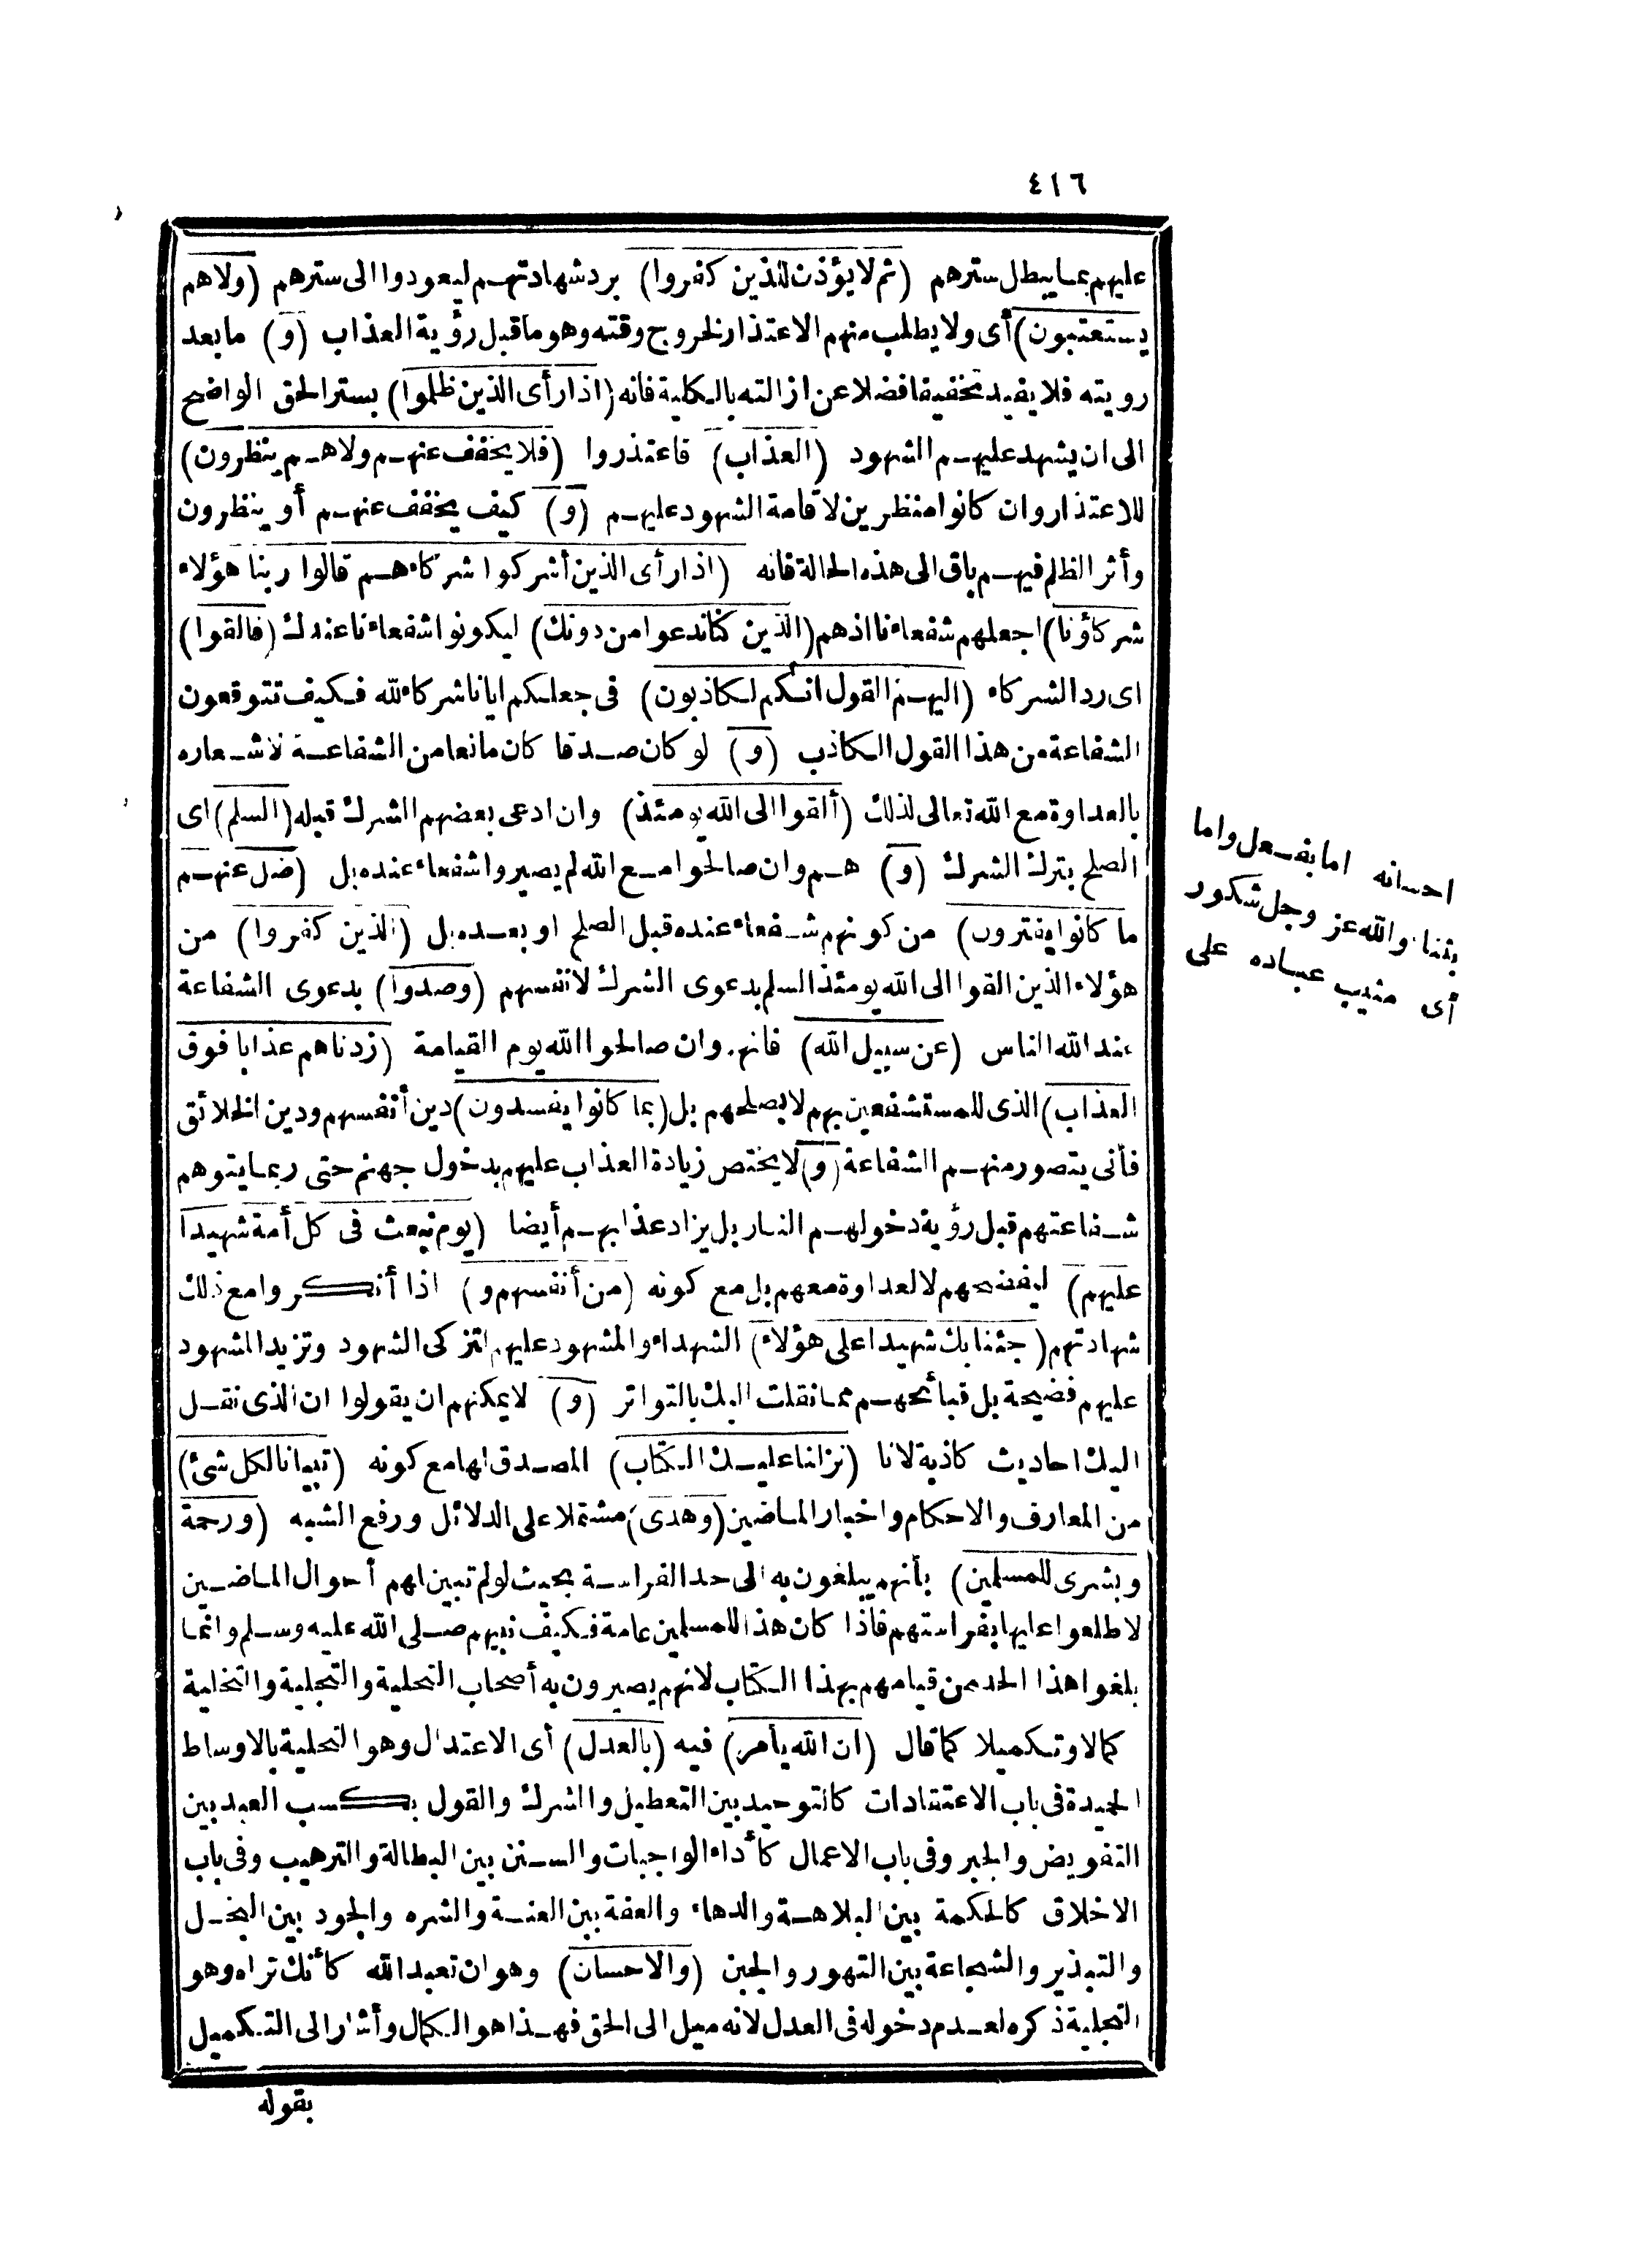 ٤١٦
عليهم بما يبطل سترهم (ثم لا يؤذن للذين كفروا) برد شهادتهم ليعودوا الى سترهم (ولا هم
يستعتبون) أى ولا يطلب منهم الاعتذار لخروج وقته وهو ما قبل رؤية العذاب (و) ما بعد
رويته فلا يفيد تخفيفا فضلا عن ازالته بالكلية فانه (اذا رأى الذين ظلموا) بستر الحق الواضح
الى ان يشهد عليهم الشهود (العذاب) فاعتذروا (فلا يخفف عنهم ولا هم ينظرون)
للاعتذار وان كانوا منظرين لاقامة الشهود عليهم (و) كيف يخفف عنهم أو ينظرون
وأثر الظلم فيهم باق الى هذه الحالة فانه (اذا رأى الذين أشركوا شركاءهم قالوا ربنا هؤلاء
شركاؤنا) اجعلهم شفعاءنا اذهم (الذين كنا ندعوا من دونك) ليكونوا شفعاءنا عندك (فالقوا)
اى رد الشركاء (اليهم القول انكم لكاذبون) فى جعلكم ايانا شركاء لله فكيف تتوقعون
الشفاعة من هذا القول الكاذب (و) لو كان صدقا كان مانعا من الشفاعة لاشعاره
بالعداوة مع الله تعالى لذلك (ألقوا الى الله يومئذ) وان ادعى بعضهم الشرك قبله (السلم) اى
الصلح بترك الشرك (و) هم وان صالحوا مع الله لم يصيروا شفعاء عنده بل (ضل عنهم
ما كانوا يفترون) من كونهم شفعاء عنده قبل الصلح او بعده بل (الذين كفروا) من
هؤلاء الذين القوا الى الله يومئذ السلم بدعوى الشرك لانفسهم (وصدوا) بدعوى الشفاعة
عند الله الناس (عن سبيل الله) فانهم وان صالحوا الله يوم القيامة (زدناهم عذابا فوق
العذاب) الذى للمستشفعين بهم لا يصلحهم بل (بما كانوا يفسدون) دين أنفسهم ودين الخلائق
فأنى يتصور منهم الشفاعة (و) لا يختص زيادة العذاب عليهم بدخول جهنم حتى ربما يتوهم
شفاعتهم قبل رؤية دخولهم النار بل يزاد عذابهم أيضا (يوم نبعث فى كل أمة شهيدا
عليهم) ليفضحهم لا لعداوة معهم بل مع كونه (من أنفسهم و) اذا أنكروا مع ذلك
شهادتهم (جئنا بك شهيدا على هؤلاء) الشهداء والمشهود عليهم لتزكى الشهود وتزيد المشهود
عليهم فضيحة بل قبائحهم مما نقلت اليك بالتواتر (و) لا يمكنهم ان يقولوا ان الذى نقل
اليك احاديث كاذبة لانا (نزلنا عليك الكتاب) المصدق لها مع كونه (تبيانا لكل شئ)
من المعارف والاحكام واخبار الماضين (وهدى) مشتملا على الدلائل ورفع الشبه (ورحمة
وبشرى للمسلمين) بأنهم يبلغون به الى حد الفراسة بحيث لو لم تبين لهم أحوال الماضين
لاطلعوا عليها بفراستهم فاذا كان هذا للمسلمين عامة فكيف نبيهم صلى الله عليه وسلم وانما
بلغوا هذا الحد من قيامهم بهذا الكتاب لانهم يصيرون به أصحاب التحلية والتجلية والتخلية
كمالا وتكميلا كما قال (ان الله يأمر) فيه (بالعدل) أى الاعتدال وهو التحلية بالاوساط
الحميدة فى باب الاعتقادات كالتوحيد بين التعطيل والشرك والقول بكسب العبد بين
التفويض والجبر وفى باب الاعمال كأداء الواجبات والسنن بين البطالة والترهيب وفى باب
الاخلاق كالحكمة بين البلاهة والدهاء والعفة بين العنة والشره والجود بين البخل
والتبذير والشجاعة بين التهور والجبن (والاحسان) وهو ان تعبد الله كأنك تراه وهو
التجلية ذكره لعدم دخوله فى العدل لانه ميل الى الحق فهذا هو الكمال وأشار الى التكميل
بقوله
احسانه اما بفعل واما
بثناء والله عز وجل شكور
أى مثيب عباده على